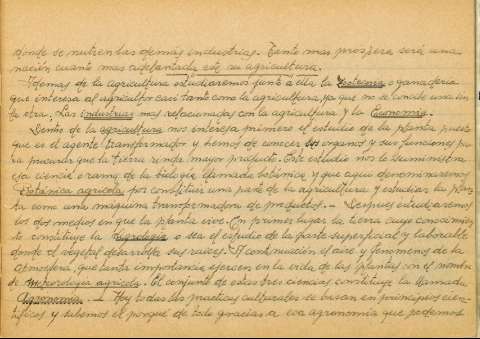 donde se nutren las demás industrias. Tanto mas prospera será una
nación cuanto mas adelantada esté su agricultura.
Además de la agricultura estudiaremos junto a ella la Zootecnia o ganaderia
que interesa al agricultor casi tanto como la agricultura, ya que no se concibe una sin
la otra. Las industrias mas relacionadas con la agricultura y la Economía.
Dentro de la agricultura nos interesa primero el estudio de la planta puesto
que es el agente transformador y hemos de conocer sus organos y sus funciones pa-
ra procurar que la tierra rinda mayor producto. Este estudio nos lo suministra
la ciencia o rama de la biologia llamada botánica y que aqui denominaremos
Botánica agricola por constituir una parte de la agricultura y estudiar la plan-
ta como una maquina transformadora de productos. — Despues estudiaremos
los dos medios en que la planta vive. En primer lugar la tierra cuyo conocimien-
to constituye la Agrología o sea el estudio de la parte superficial y laborable
donde el vegetal desarrolla sus raices. A continuación el aire y fenomenos de la
atmosfera, que tanta importancia ejercen en la vida de las plantas con el nombre
de Meteorologia agricola. El conjunto de estas tres ciencias constituye la llamada
Agronomía. — Hoy todas las practicas culturales se basan en principios cien-
tíficos y sabemos el porqué de todo gracias a esa agronomía que podemos